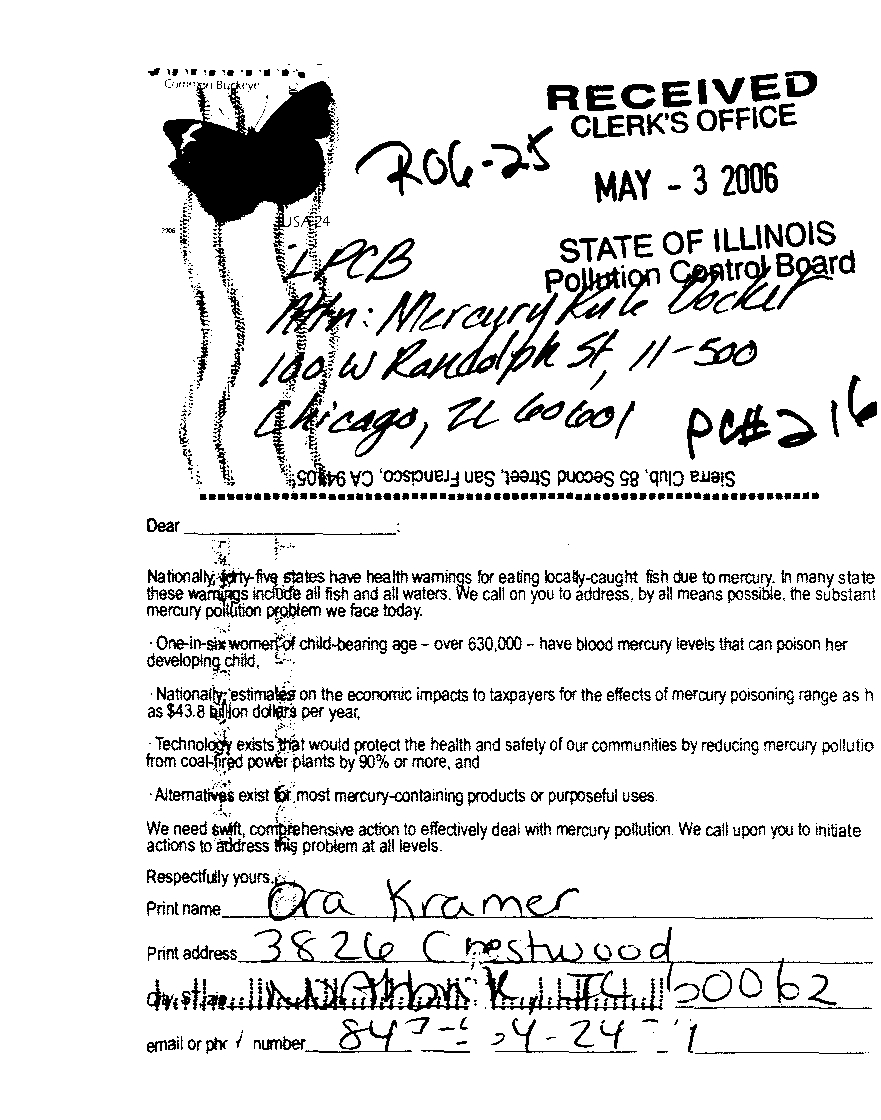 Common Buckeye
RECEIVED
CLERK'S OFFICE
R06-25
MAY - 3 2006
2006
USA 24
STATE OF ILLINOIS
Pollution Control Board
IPCB
Attn: Mercury Rule Docket
100 W Randolph St, 11-500
Chicago, IL 60601
PC# 216
Sierra Club, 85 Second Street, San Francisco, CA 94105
Dear :
Nationally, forty-five states have health warnings for eating locally-caught fish due to mercury. In many state
these warnings include all fish and all waters. We call on you to address, by all means possible, the substant
mercury pollution problem we face today.
· One-in-six women of child-bearing age – over 630,000 – have blood mercury levels that can poison her
developing child,
· Nationally, estimates on the economic impacts to taxpayers for the effects of mercury poisoning range as h
as $43.8 billion dollars per year,
· Technology exists that would protect the health and safety of our communities by reducing mercury pollutio
from coal-fired power plants by 90% or more, and
· Alternatives exist for most mercury-containing products or purposeful uses.
We need swift, comprehensive action to effectively deal with mercury pollution. We call upon you to initiate
actions to address this problem at all levels.
Respectfully yours,
Print name Ora Kramer
Print address 3826 Crestwood
60062
email or number 847-